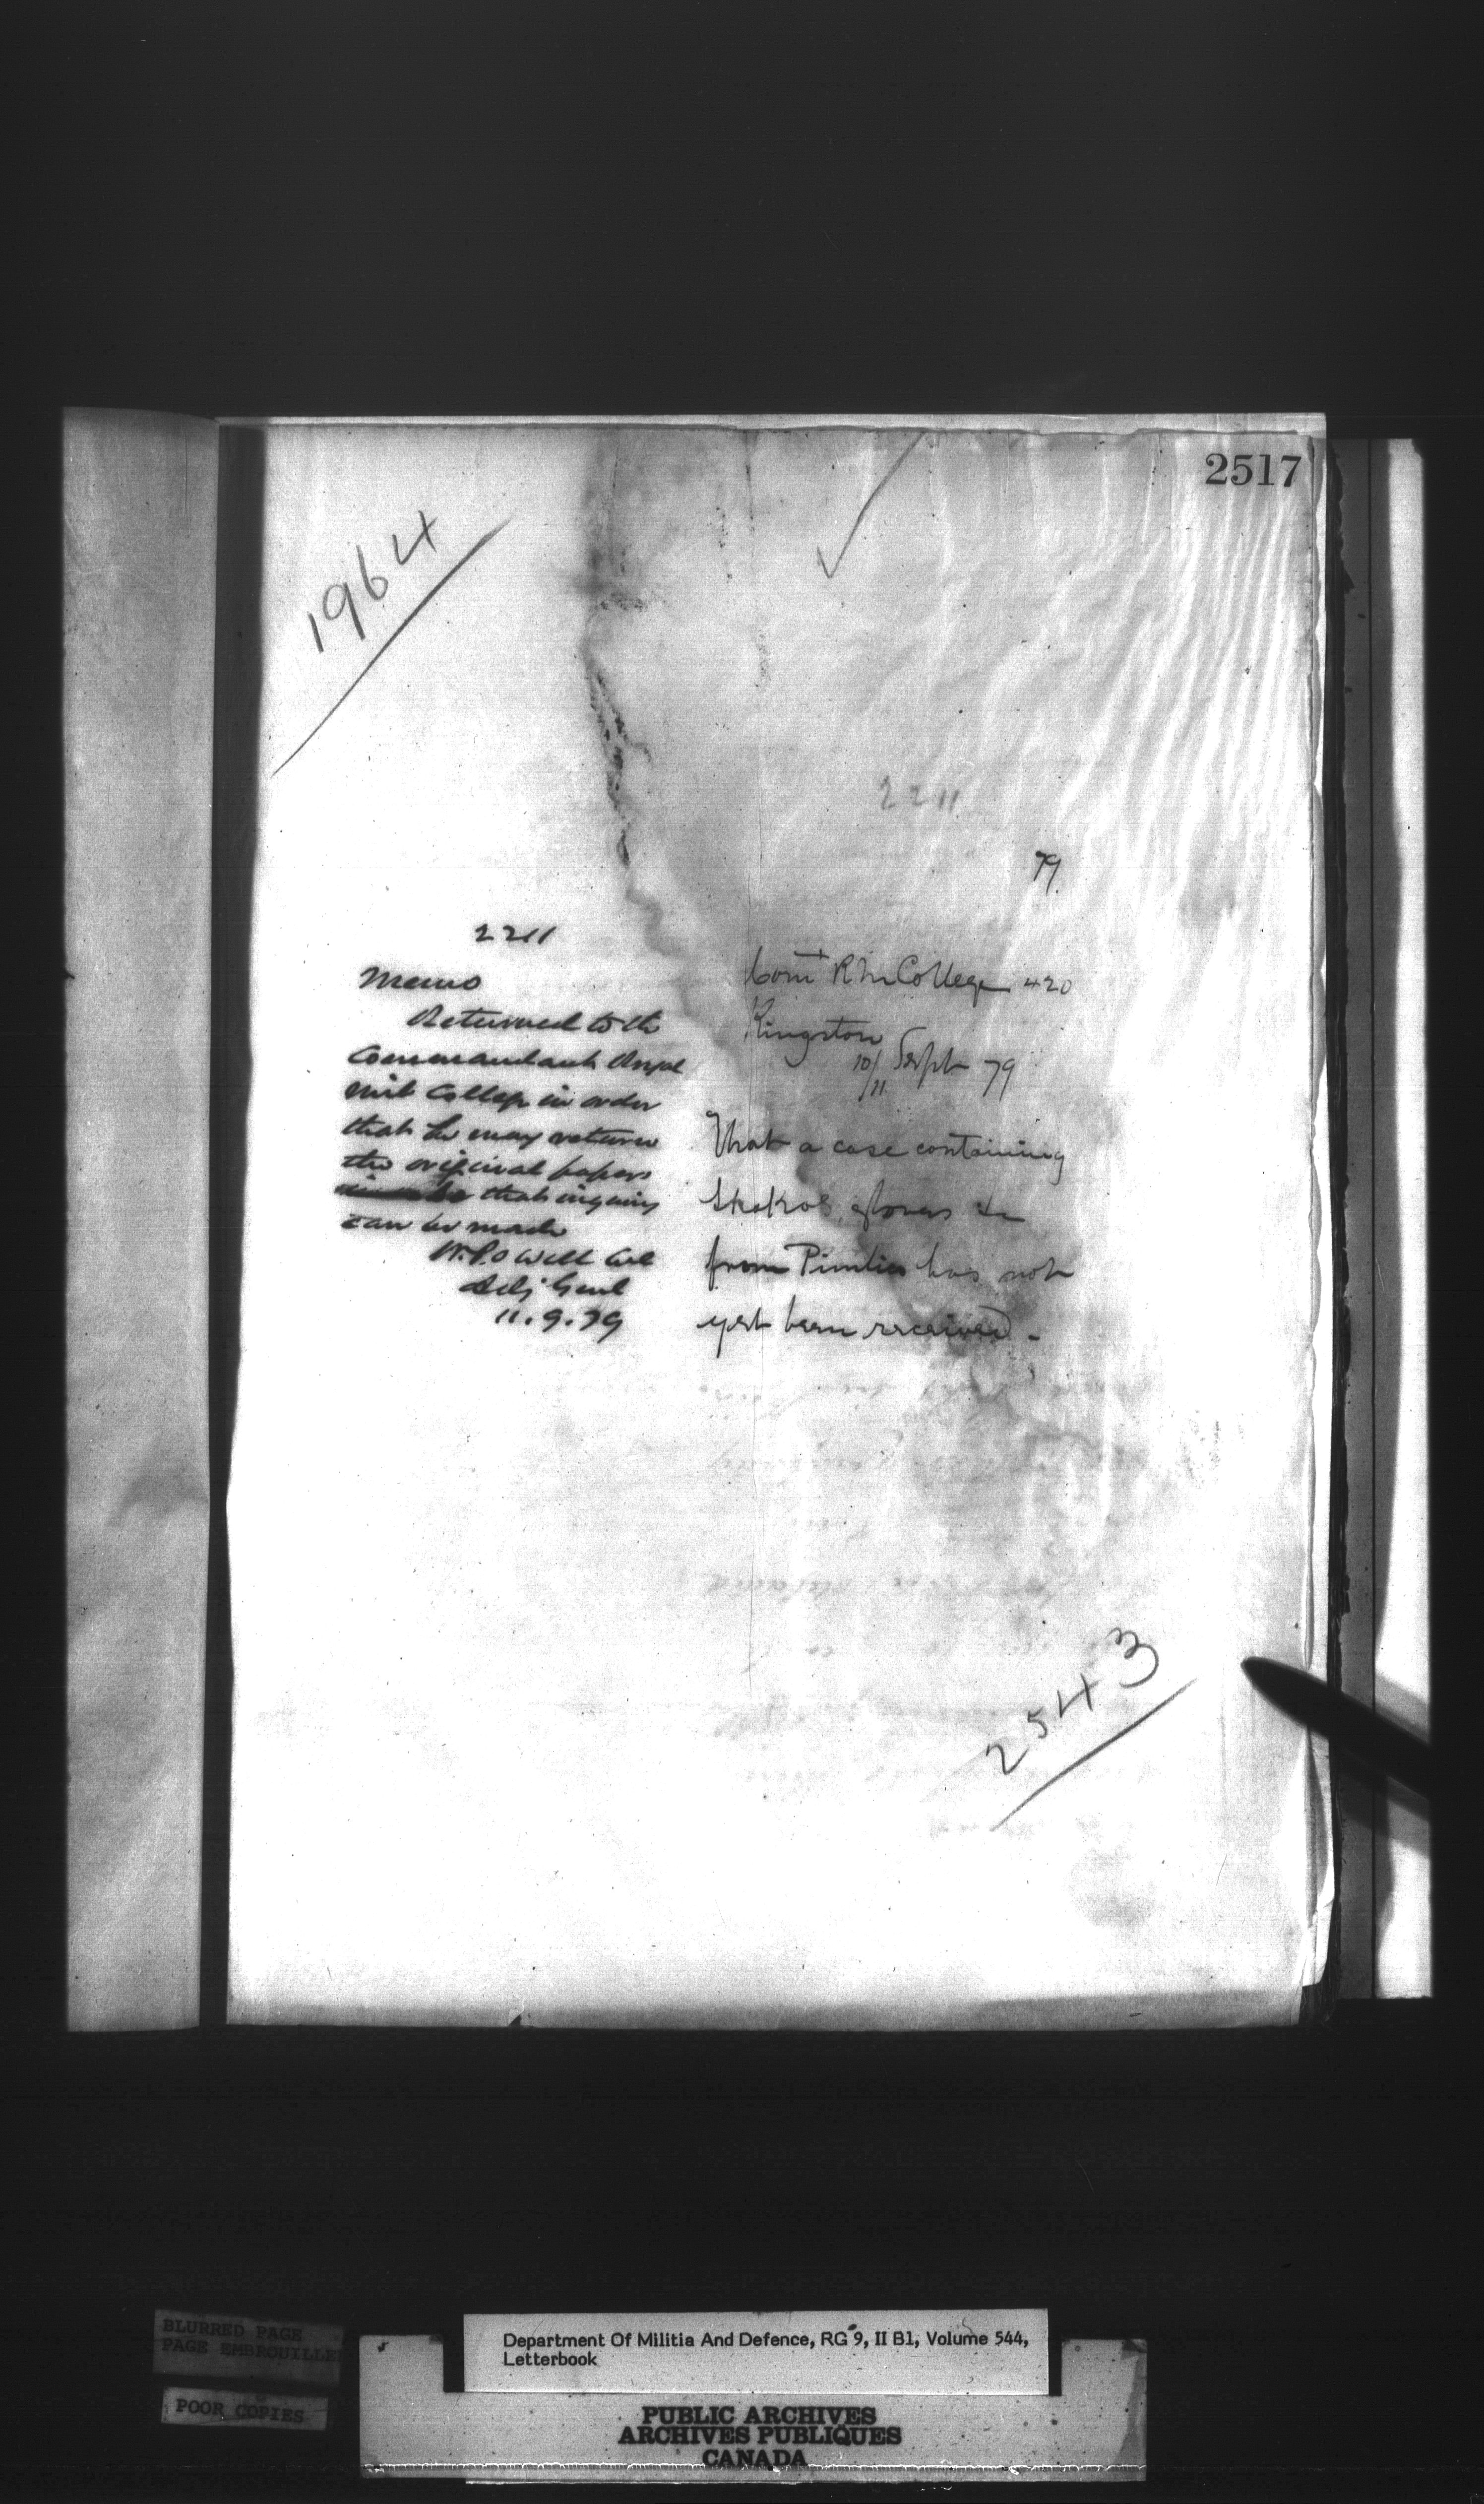 2517
1964
2211
79
2211
Memo
Returned to the
Commandant Royal
Mil College in order
that he may return
the original papers
that inquiry
can be made
W. Powell Col
Adj Genl
11.9.79
Comt R M College 420
Kingston
10/11 Sept 79
That a case containing
Shakos, gloves &c
from Pimlico has not
yet been received -
2543
BLURRED PAGE
PAGE EMBROUILLEE
POOR COPIES
Department Of Militia And Defence, RG 9, II B1, Volume 544,
Letterbook
PUBLIC ARCHIVES
ARCHIVES PUBLIQUES
CANADA